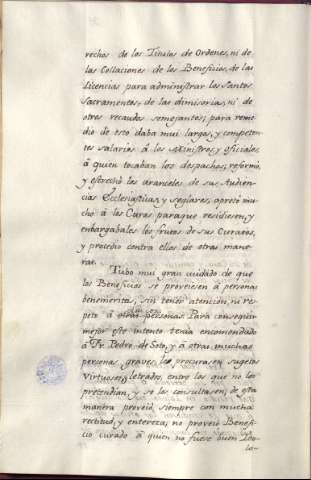 rechos de los Titulos de Ordenes, ni de
las Collaciones de los Beneficios, de las
Licencias para administrar los Santos
Sacramentos, de las dimisorias, ni de
otros recaudos semejantes; para reme
dio de esto daba mui largos, y competen
tes salarios á los Ministros, y oficiales
á quien tocaban los despachos; reformó,
y estrechó los aranceles de sus Audien
cias Ecclesiasticas, y seglares, apretó mu
cho á los Curas paraque residiesen, y
embargabales los frutos de sus Curatos,
y procedio contra ellos de otras mane
ras.
Tubo mui gran cuidado de que
los Beneficios se proveiesen á personas
benemeritas, sin tener atencion, ni res
peto á otras personas. Para conseguir
mejor este intento tenia encomendado
á Fr. Pedro de Soto, y á otras muchas
personas graves, les procurasen sugetos
Virtuosos, y letrados, entre los que no los
pretendian, y se los consultasen; de esta
manera proveió siempre con mucha
rectitud, y entereza; no proveió Benefi
cio curado á quien no fuese buen Theo
lo-